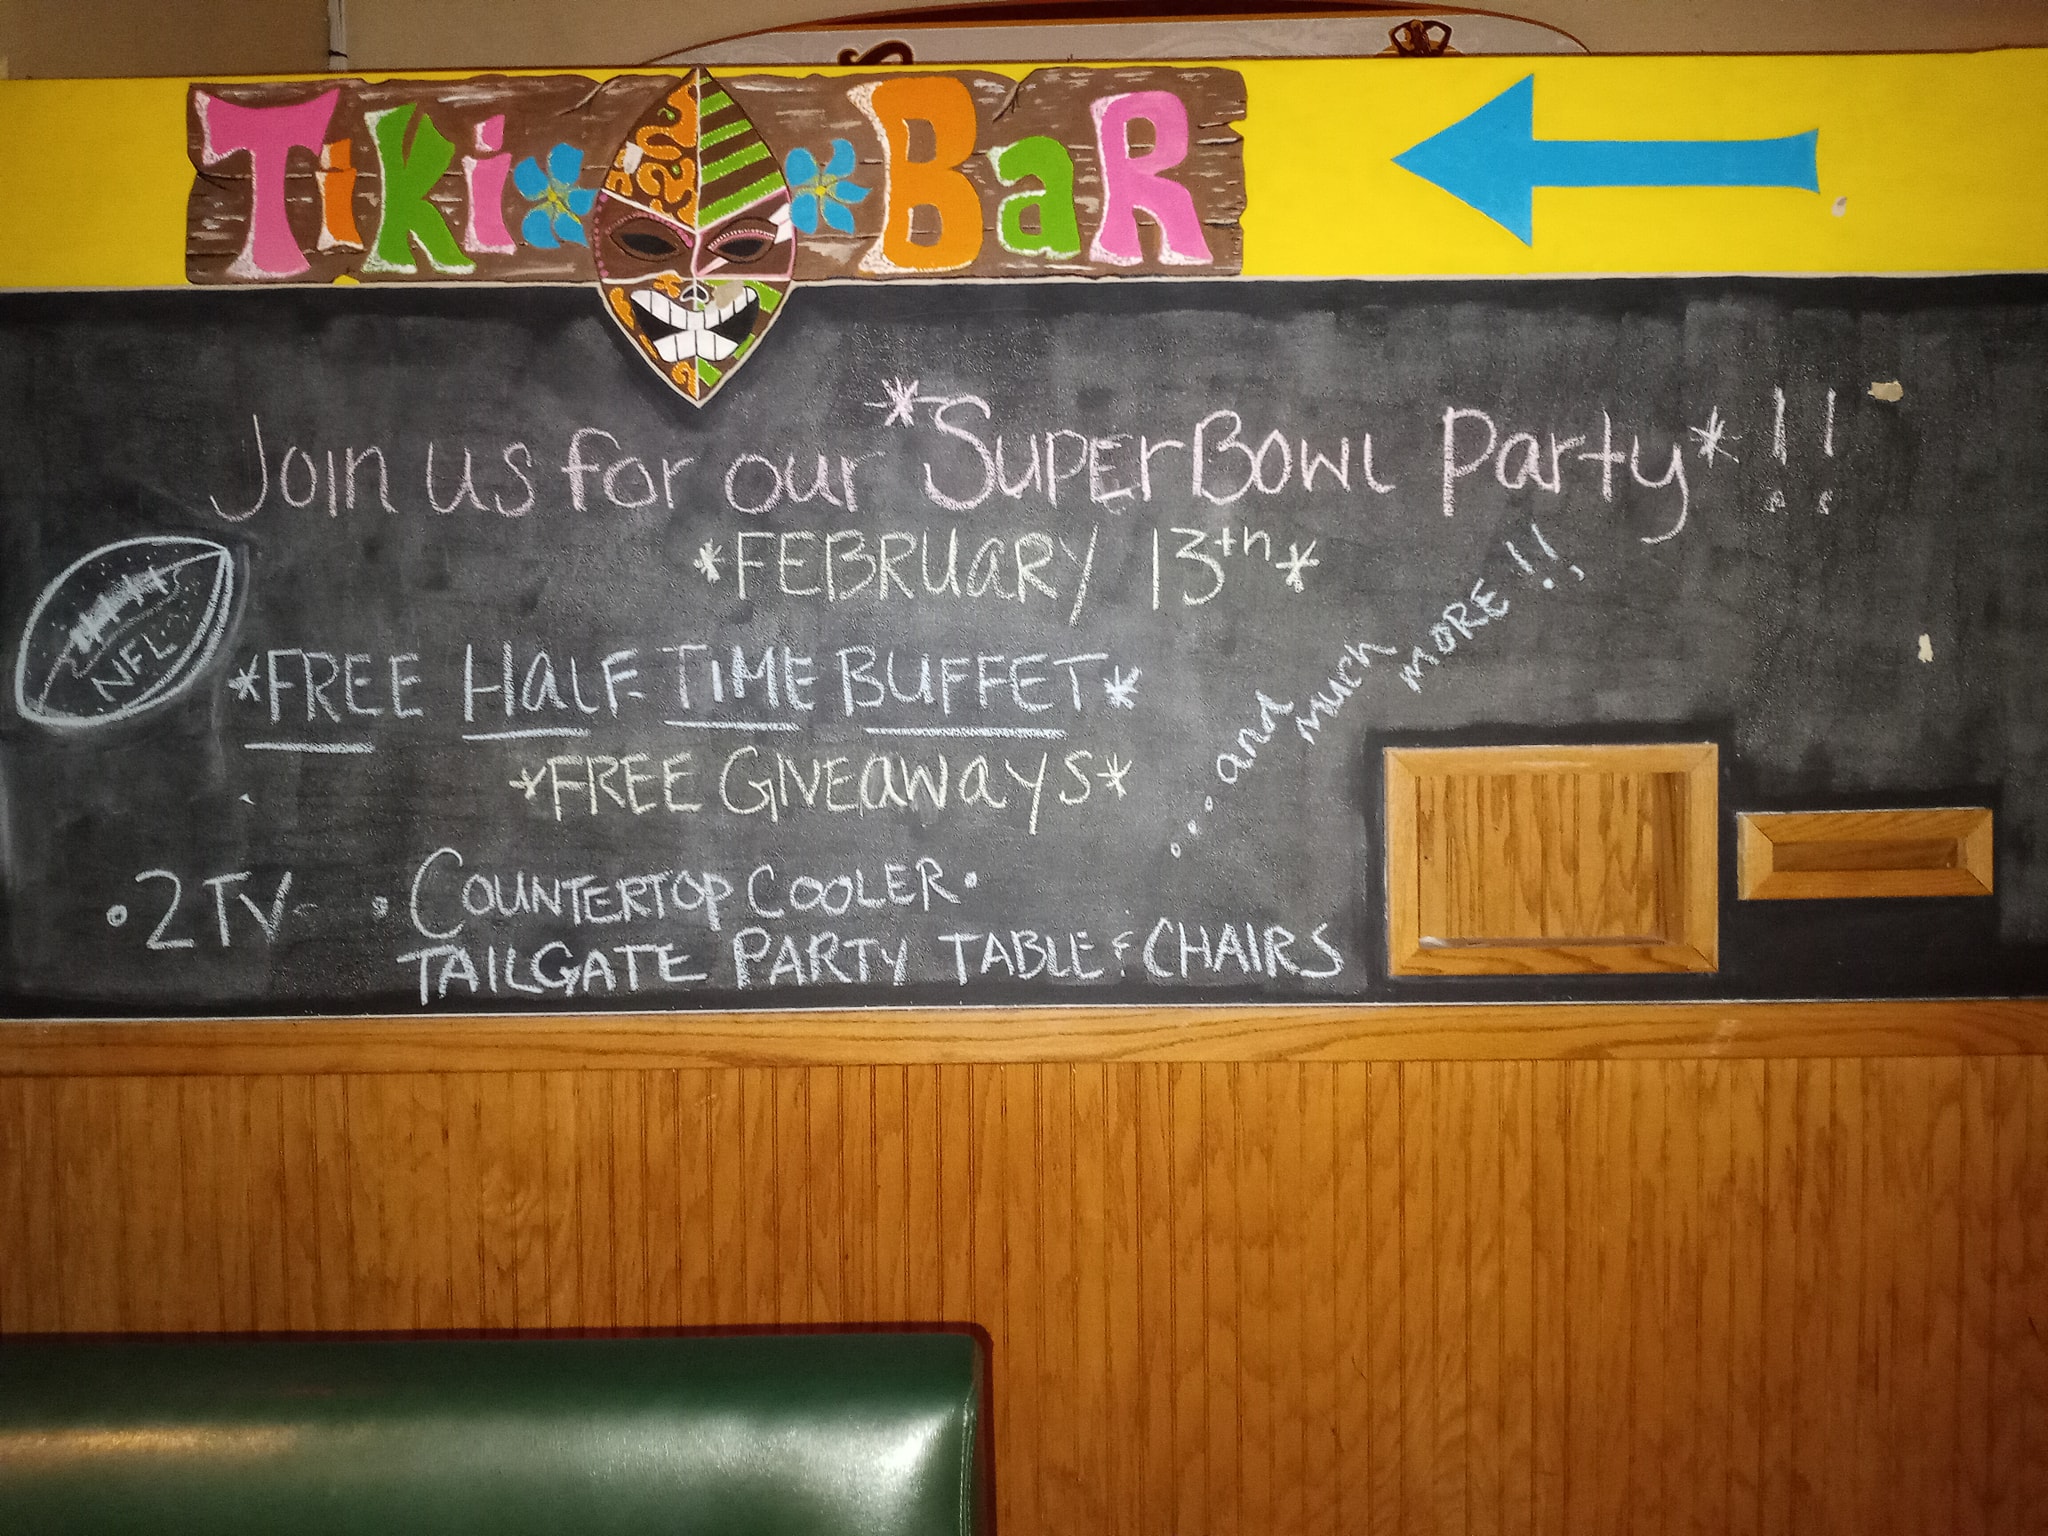 TiKi BaR
Join us for our *SuperBowl Party*!!
*FEBRUaRY 13th*
NFL
*FREE HalF TIME BUFFET*
*FREE GIVEawaYS*
...and much more!!
•2 TV- •COUNTERTOP COOLER•
TAILGATE PARTY TABLE & CHAIRS